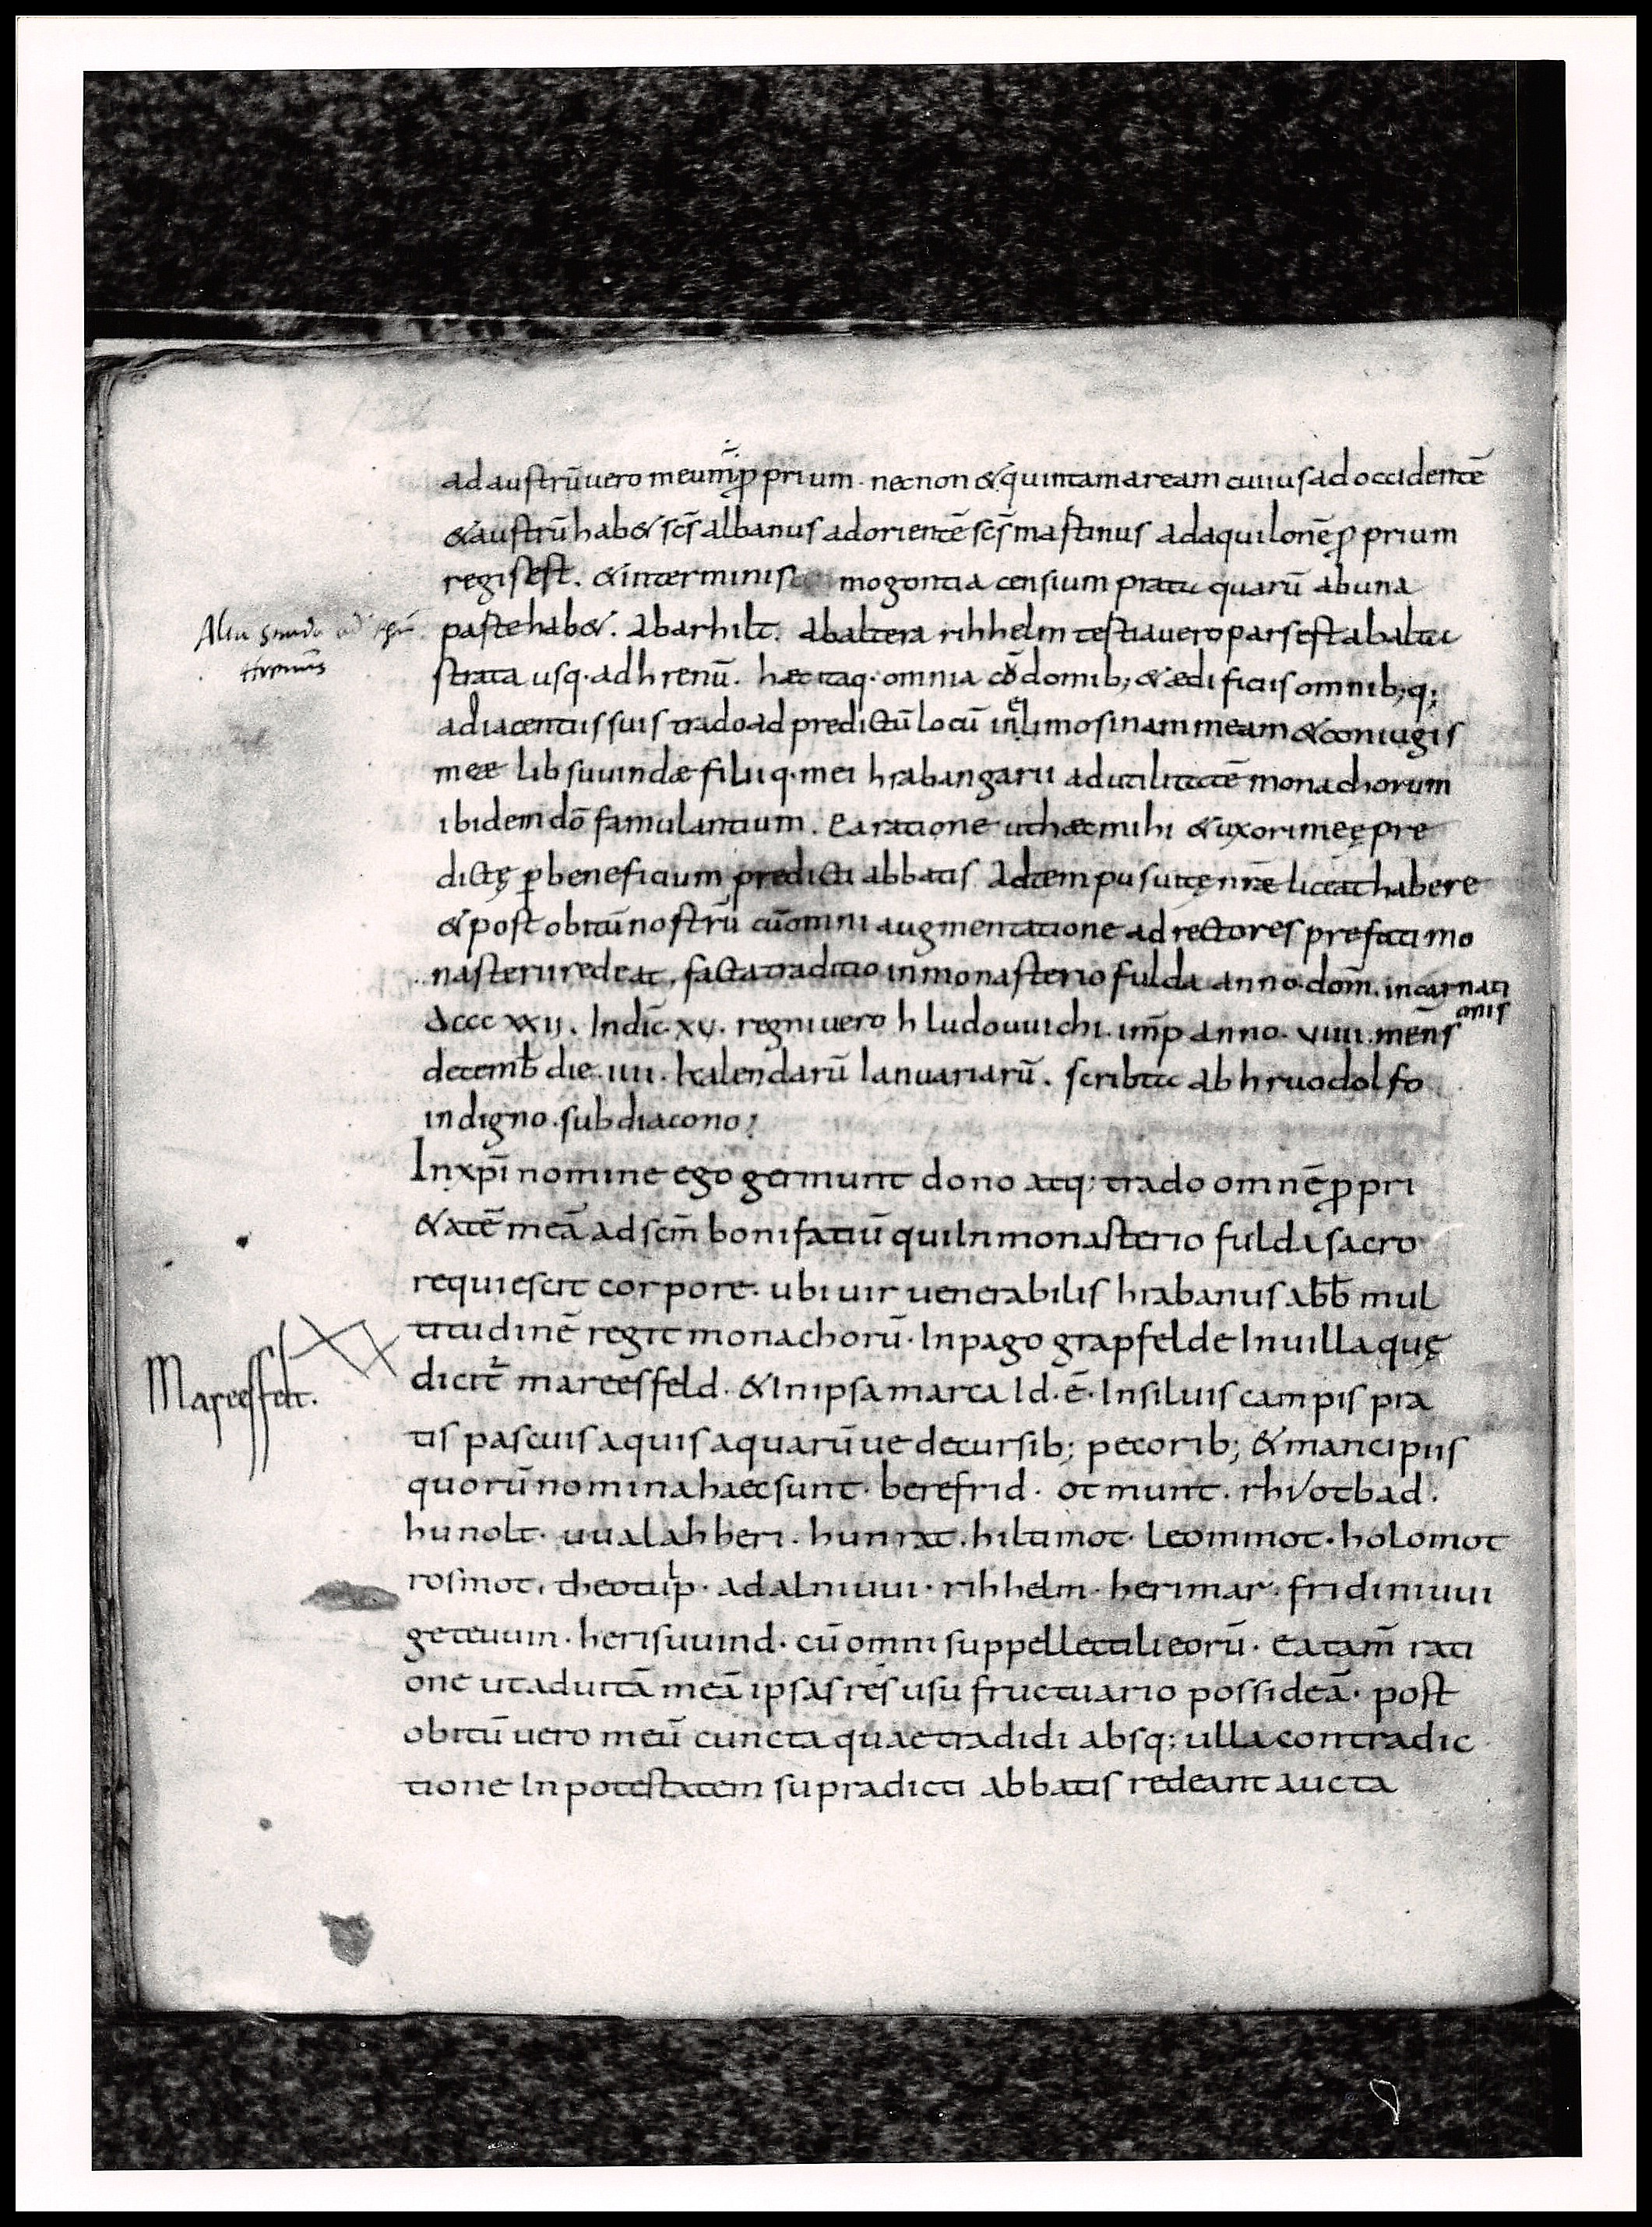 ad austrū uero meum ꝓprium · necnon & quintam aream cuius ad occidentē
& austrū hab& scs̄ albanus ad orientē scs̄ martinus ad aquilonē ꝓprium
regis est . & in terminis mogontia censium prata quarū ab una
parte hab& . abarhilt . ab altera rihhelm tertia uero pars est ab alta
strata usq· ad hrenū . hæc itaq· omnia cū domib; & ædificiis omnib;q;
adiacentiis suis trado ad predictū locū in elimosinam meam & coniugis
meæ libsuuindæ filiiq· mei hrabangarii ad utilitatē monachorum
ibidem dō famulantium . ea ratione ut hæc mihi & uxori meę pre
dictę ꝑ beneficium predicti abbatis ad tempus uitę nr̄e liceat habere
& post obitū nostrū cū omni augmentatione ad rectores prefati mo
nasterii redeat . facta traditio in monasterio fulda anno dom̄ . incarnati
onis
dccc xxii . Indic̄ . xv . regni uero hludouuichi . imp̄ anno . viiii . mens̄
decemb̄ die . iiii . kalendarū Ianuariarū . scribta ab hruodolfo
indigno . subdiacono ;
In xp̄i nomine ego germunt dono atq; trado omnē ꝓpri
&atē meā ad scm̄ bonifatiū qui In monasterio fulda sacro
requiescit corpore · ubi uir uenerabilis hrabanus abb̄ mul
titudinē regit monachorū · In pago grapfelde In uilla quę
dicit̄ mareesfeld · & In ipsa marca Id · ē · In siluis campis pra
tis pascuis aquis aquarū ue decursib; pecorib; & mancipiis
quorū nomina haec sunt · berefrid · otmunt · rhiotbad ·
hunolt · uualahheri · hunrat · hiltimot · leommot · holomot
rosmot · theotulp · adalniuui · rihhelm · herimar · fridiniuui
geteuuin · herisuuind · cū omni suppellectili eorū · ea tam̄ rati
one ut ad uitā meā ipsas res usu fructuario possideā · post
obitū uero meū cuncta quae tradidi absq; ulla contradic
tione In potestatem supradicti abbatis redeant aucta
Mareesfelt .